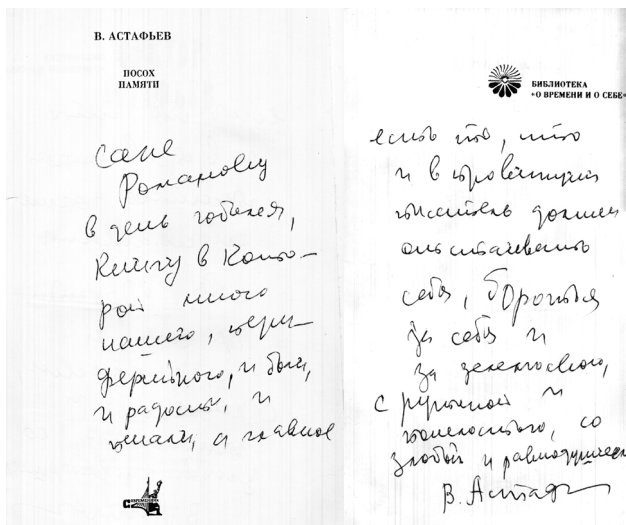 В. АСТАФЬЕВ
ПОСОХ
ПАМЯТИ
Саше
Романову
в день юбилея,
книгу в кото-
рой много
нашего, пери-
ферийного, и боли,
и радости, и
печали, а главное
БИБЛИОТЕКА
«О ВРЕМЕНИ И О СЕБЕ»
есть то, что
и в провинции
писатель должен
отстаивать
себя, бороться
за себя и
за
с рутиной и
пошлостью, со
злобой и равнодушием
В. Астафьев